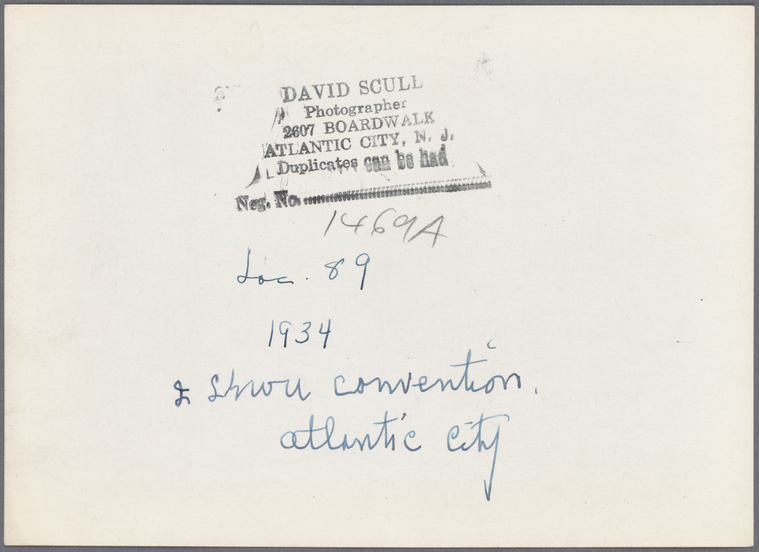 DAVID SCULL
Photographer
2607 BOARDWALK
ATLANTIC CITY, N. J.
Duplicates can be had
Neg. No.
1469A
Loc. 89
1934
convention.
atlantic City